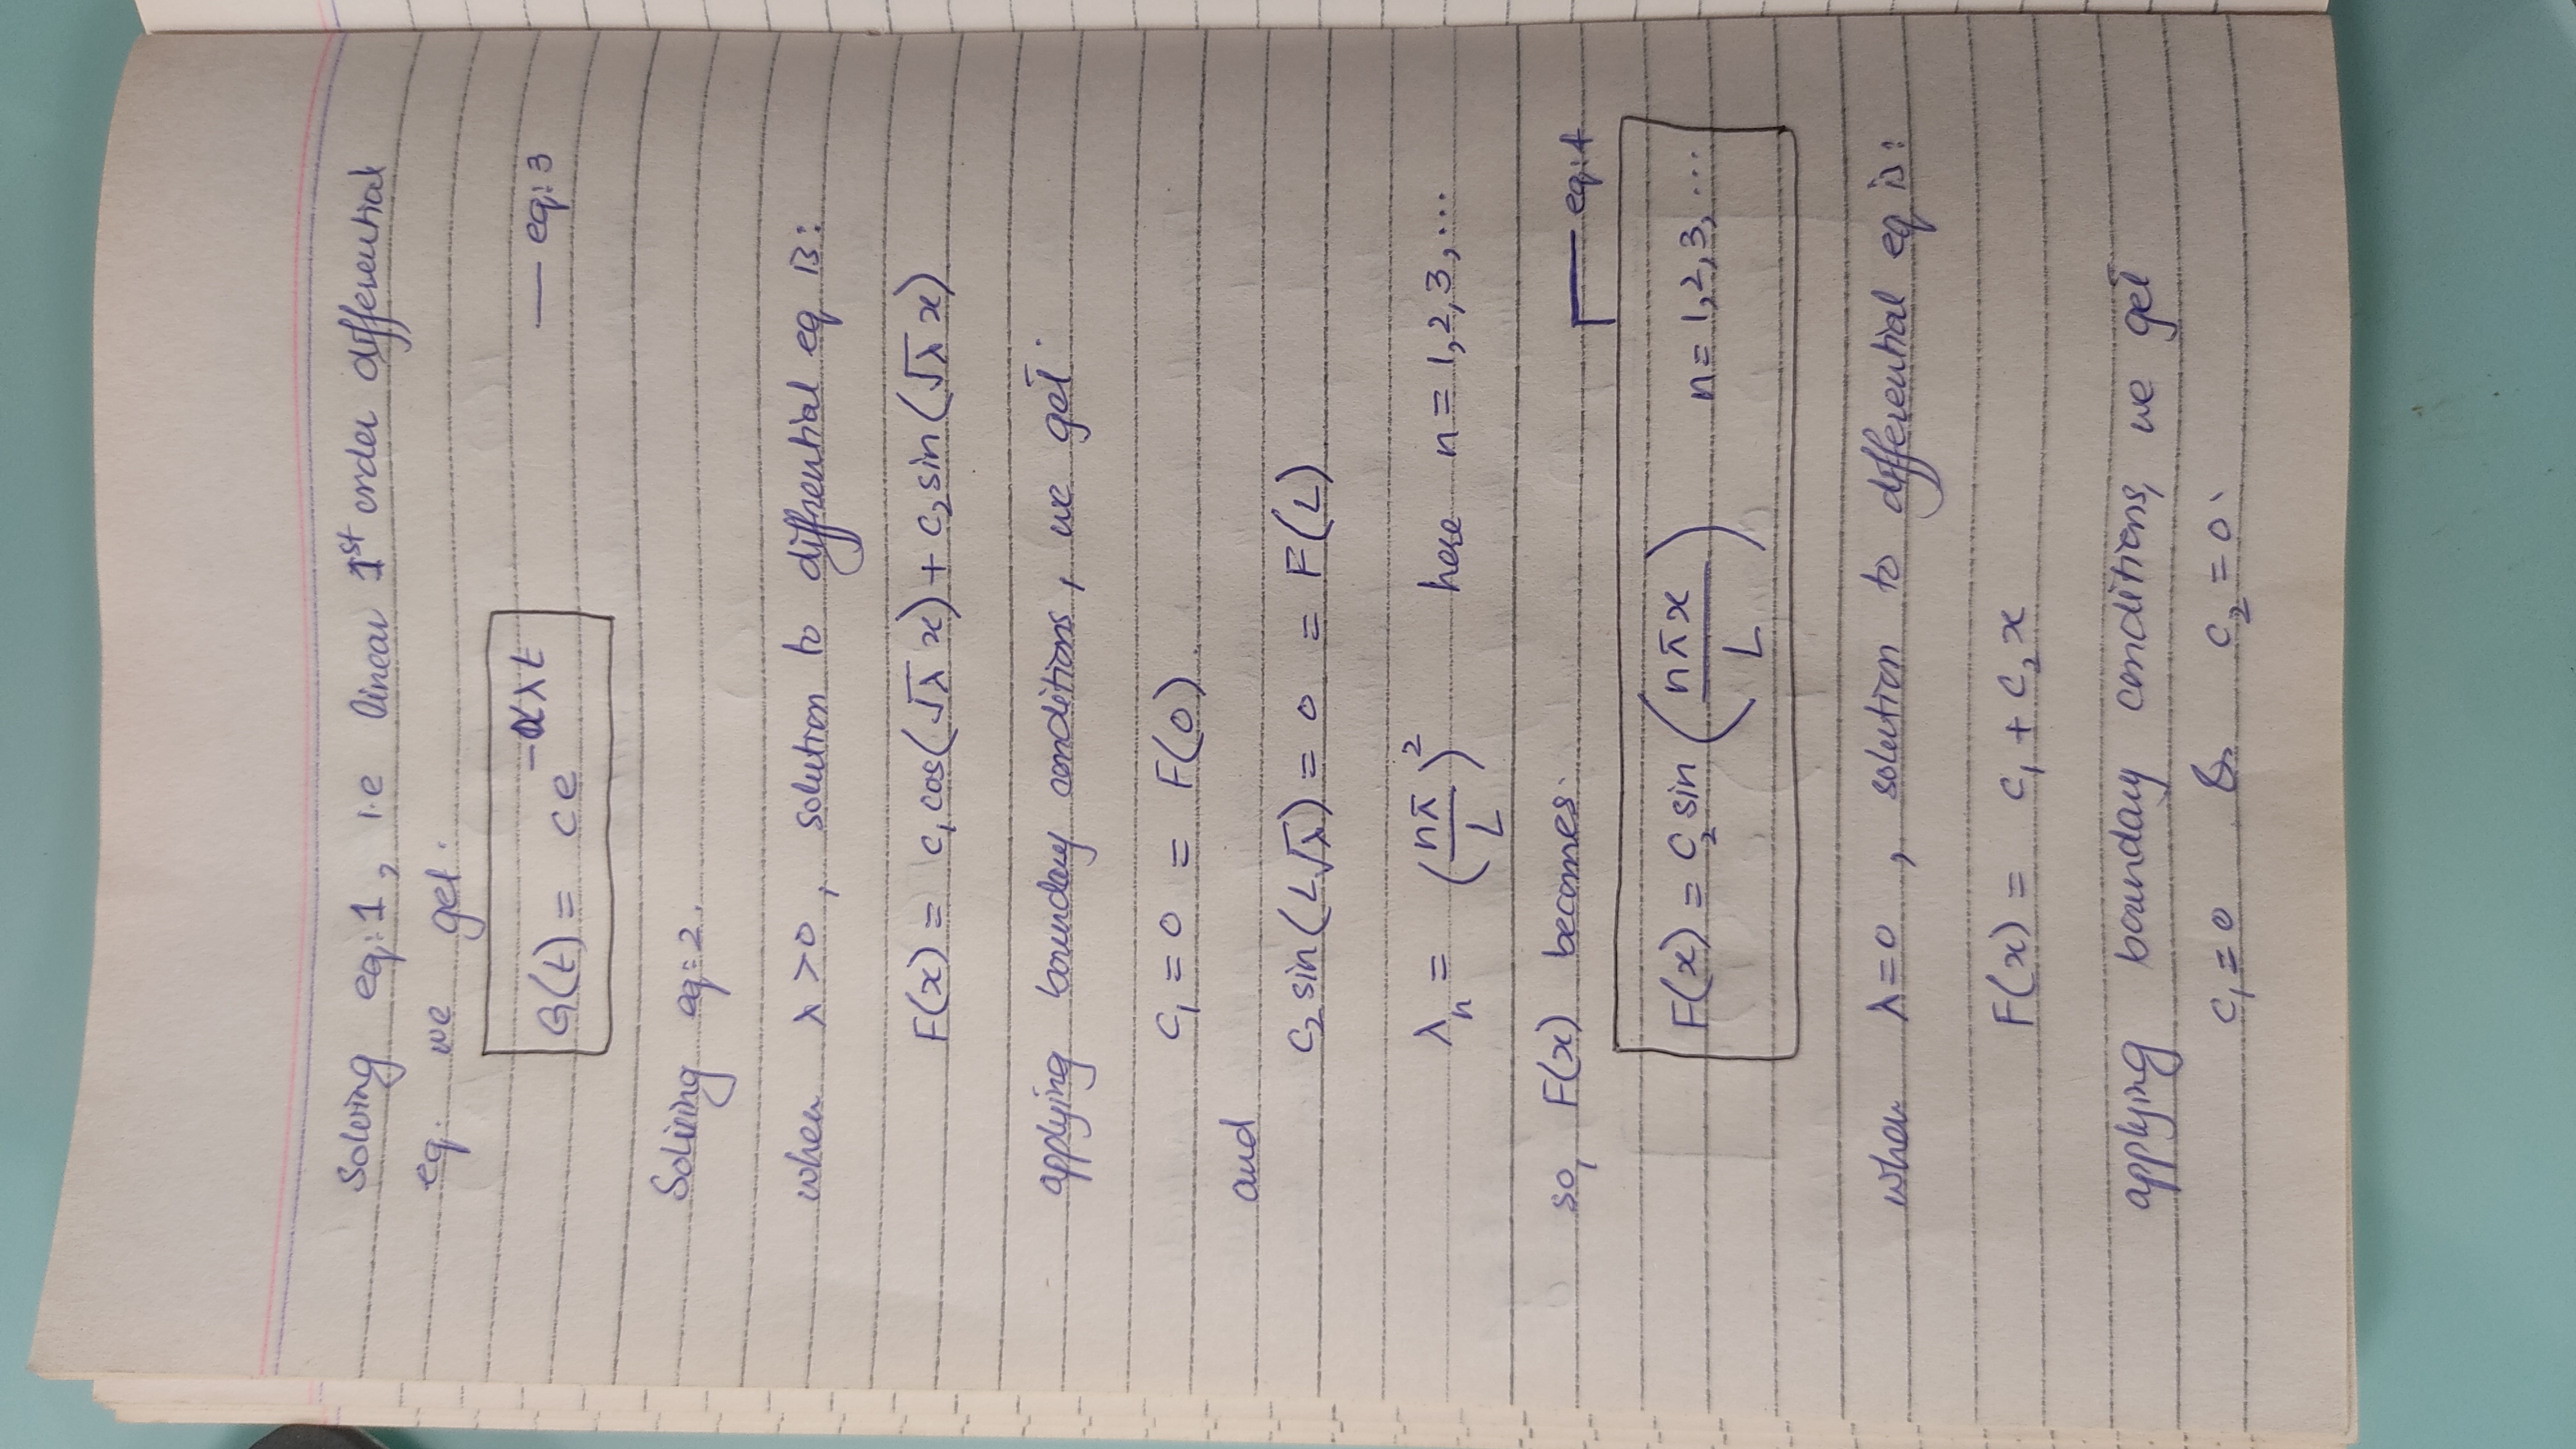 Solving eq:1, i.e linear 1st order differential
eq. we get.
G(t) = ce^{-αλt} — eq:3
Solving eq:2.
when λ>0, solution to diffrential eq is:
F(x) = c₁cos(√λ x) + c₂sin(√λ x)
applying boundary conditions, we get
c₁ = 0 = F(0).
and
c₂ sin(L√λ) = 0 = F(L)
λₙ = (nπ/L)² here n = 1,2,3,...
so, F(x) becomes. — eq:4
F(x) = c₂ sin(nπx/L) n = 1,2,3,...
when λ=0, solution to differential eq is:
F(x) = c₁ + c₂x
applying boundary conditions, we get
c₁=0 & c₂=0.